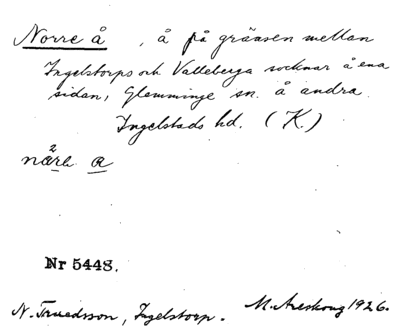 Norre å , å på gränsen mellan
Ingelstorps och Valleberga socknar å ena
sidan, Glemminge sn. å andra.
Ingelstads hd. (K.)
Nr 5448.
N. Truedsson, Ingelstorp. M. Areskoug 1926.